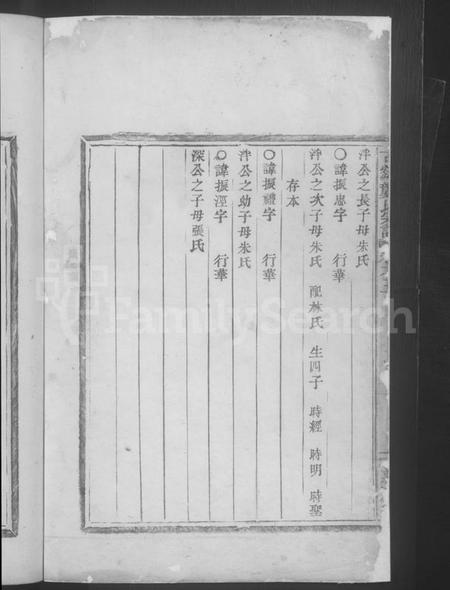 泮公之長子母朱氏
○諱振忠字 行華
泮公之次子母朱氏 配林氏 生四子 時經 時明 時聖
存本
○諱振禮字 行華
泮公之幼子母朱氏
○諱振涇字 行華
深公之子母張氏
FamilySearch